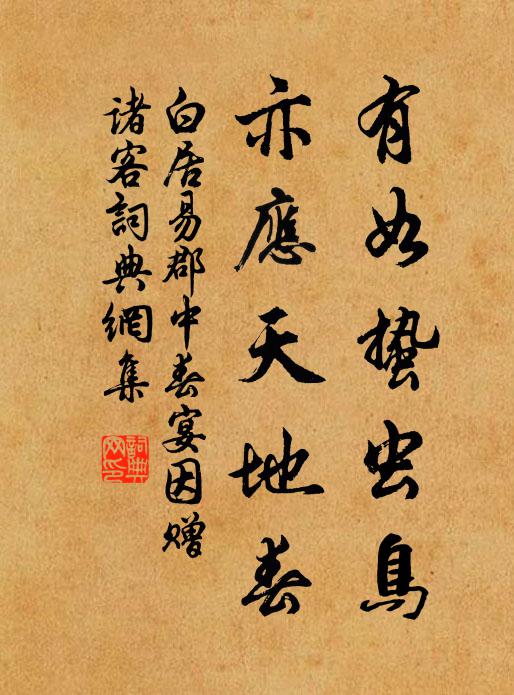 有如蛰虫鳥
亦應天地春
白居易郡中春宴因赠
诸客詞典網集